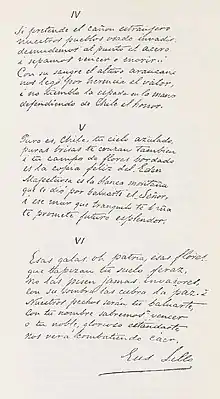 IV
Si pretende el cañon estranjero
nuestros pueblos osado invadir,
desnudemos al punto el acero
i sepamos vencer o morir.
Con su sangre el altivo araucano
nos legó por herencia el valor,
i no tiembla la espada en la mano
defendiendo de Chile el honor.
V
Puro es, Chile, tu cielo azulado,
puras brisas te cruzan tambien
i tu campo de flores bordado
es la copia feliz del Eden.
Majestuosa es la blanca montaña
que te dió por baluarte el Señor,
i ese mar que tranquilo te baña
te promete futuro esplendor.
VI
Esas galas, oh patria, esas flores
que tapizan tu suelo feraz,
No las pisen jamas invasores,
con su sombra las cubra la paz.
Nuestros pechos serán tu baluarte,
con tu nombre sabremos vencer
o tu noble, glorioso estandarte
nos verá, combatiendo, caer.
Eus Lillo